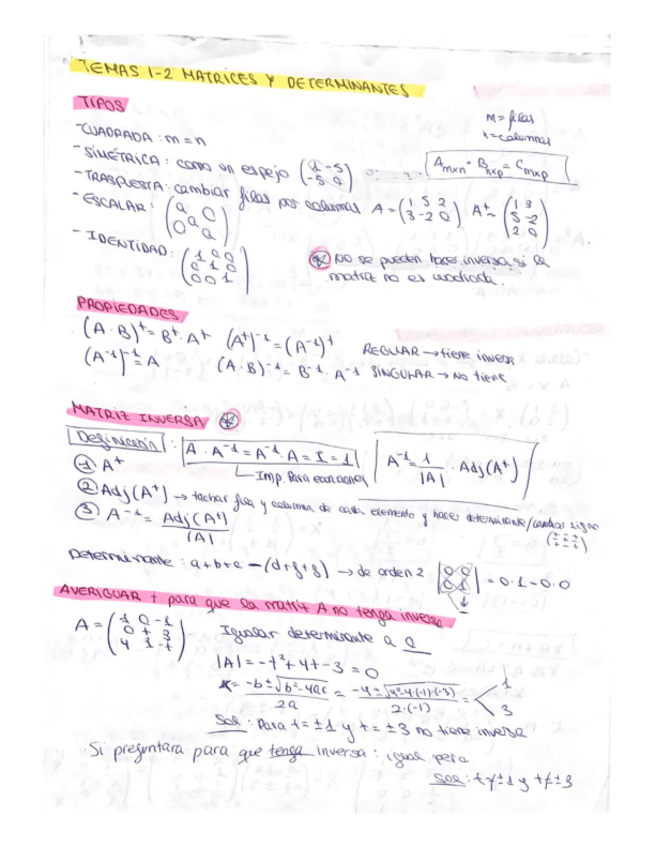 TEMAS 1-2 MATRICES Y DETERMINANTES
TIPOS
m = filas
n = columnas
- CUADRADA: m = n
- SIMÉTRICA: como un espejo (1 -5 / -5 9)
A mxn · B nxp = C mxp
- TRASPUESTA: cambiar filas por columnas A = (1 5 2 / 3 -2 0) A^t = (1 3 / 5 -2 / 2 0)
- ESCALAR: (a 0 / a / 0 a)
- IDENTIDAD: (1 0 0 / 0 1 0 / 0 0 1)
* No se pueden hacer inversa si la
matriz no es cuadrada.
PROPIEDADES
(A · B)^t = B^t · A^t (A^t)^-1 = (A^-1)^t
REGULAR → tiene inversa
(A^-1)^-1 = A (A·B)^-1 = B^-1 · A^-1 SINGULAR → No tiene
MATRIZ INVERSA *
Definición: A · A^-1 = A^-1 · A = I = 1
A^-1 = 1/|A| · Adj(A^t)
Imp. Para ecuaciones
① A^t
② Adj(A^t) → tachar fila y columna de cada elemento y hacer determinante/cambiar signo
③ A^-1 = Adj(A^t) / |A|
Determinante: a+b+c - (d+f+g) → de orden 2 |0 0 / 0 1| = 0·1-0·0
AVERIGUAR t para que la matriz A no tenga inversa
A = (1 0 -1 / 0 t 3 / 4 1 -t)
Igualar determinante a 0
|A| = -t²+4t-3 = 0
x = -b±√b²-4ac / 2a = -4±√4²-4·(-1)·(-3) / 2·(-1) = 1
3
Sol: Para t=±1 y t=±3 no tiene inversa
Si preguntara para que tenga inversa: igual pero
Sol: t≠±1 y t≠±3